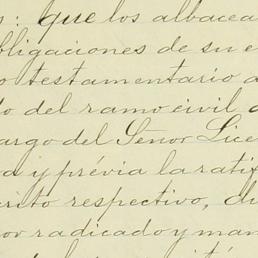 s: que los albacea
bligaciones de su e
o testamentario a
do del ramo civil d
argo del Señor Lice
a y prévia la ratif
crito respectivo, di
or radicado y man